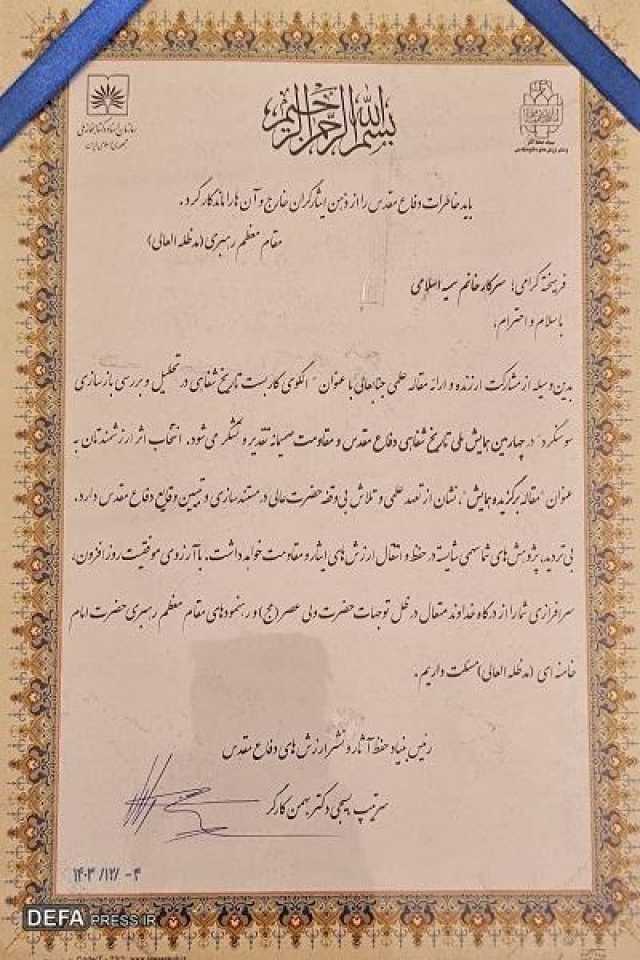 بسم الله الرحمن الرحیم
سازمان اسناد و کتابخانه ملی
جمهوری اسلامی ایران
بنیاد حفظ آثار
و نشر ارزش‌های دفاع مقدس
باید خاطرات دفاع مقدس را از ذهن ایثارگران خارج و آن ها را ماندگار کرد.
مقام معظم رهبری (مدظله العالی)
فرهیخته گرامی؛ سرکار خانم سمیه اسلامی
با سلام و احترام،
بدین وسیله از مشارکت ارزنده و ارائه مقاله علمی جنابعالی با عنوان "الگوی کاربست تاریخ شفاهی در تحلیل و بررسی بازسازی
سوسنگرد" در چهارمین همایش ملی تاریخ شفاهی دفاع مقدس و مقاومت صمیمانه تقدیر و تشکر می شود. انتخاب اثر ارزشمندتان به
عنوان "مقاله برگزیده همایش"، نشان از تعهد علمی و تلاش بی وقفه حضرت عالی در مستندسازی و تبیین وقایع دفاع مقدس دارد.
بی تردید، پژوهش های شما سهمی شایسته در حفظ و انتقال ارزش های ایثار و مقاومت خواهد داشت. با آرزوی موفقیت روز افزون،
سرافرازی شما را از درگاه خداوند متعال در ظل توجهات حضرت ولی عصر (عج) و رهنمودهای مقام معظم رهبری حضرت امام
خامنه ای (مدظله العالی) مسئلت داریم.
رئیس بنیاد حفظ آثار و نشر ارزش های دفاع مقدس
سرتیپ بسیجی دکتر بهمن کارگر
۱۴۰۳/۱۲/-۴
DEFA PRESS.IR